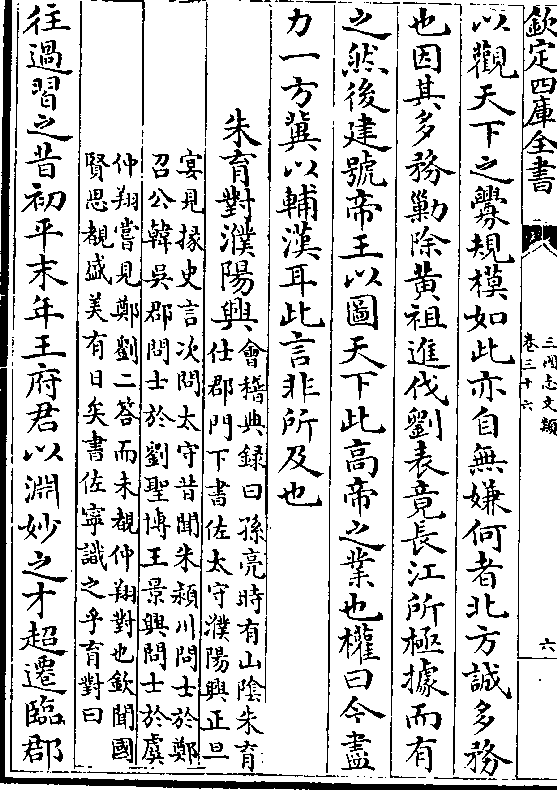 欽定四庫全書
三國志文類
卷三十六
六
以觀天下之釁規模如此亦自無嫌何者北方誠多務
也因其多務勦除黃祖進伐劉表竟長江所極據而有
之然後建號帝王以圖天下此高帝之業也權曰今盡
力一方冀以輔漢耳此言非所及也
朱育對濮陽興
會稽典録曰孫亮時有山陰朱育
仕郡門下書佐太守濮陽興正旦
宴見掾史言次問太守昔聞朱潁川問士於鄭
召公韓吳郡問士於劉聖博王景興問士於虞
仲翔嘗見鄭劉二答而未覩仲翔對也欽聞國
賢思覩盛美有日矣書佐寧識之乎育對曰
往過習之昔初平末年王府君以淵妙之才超遷臨郡